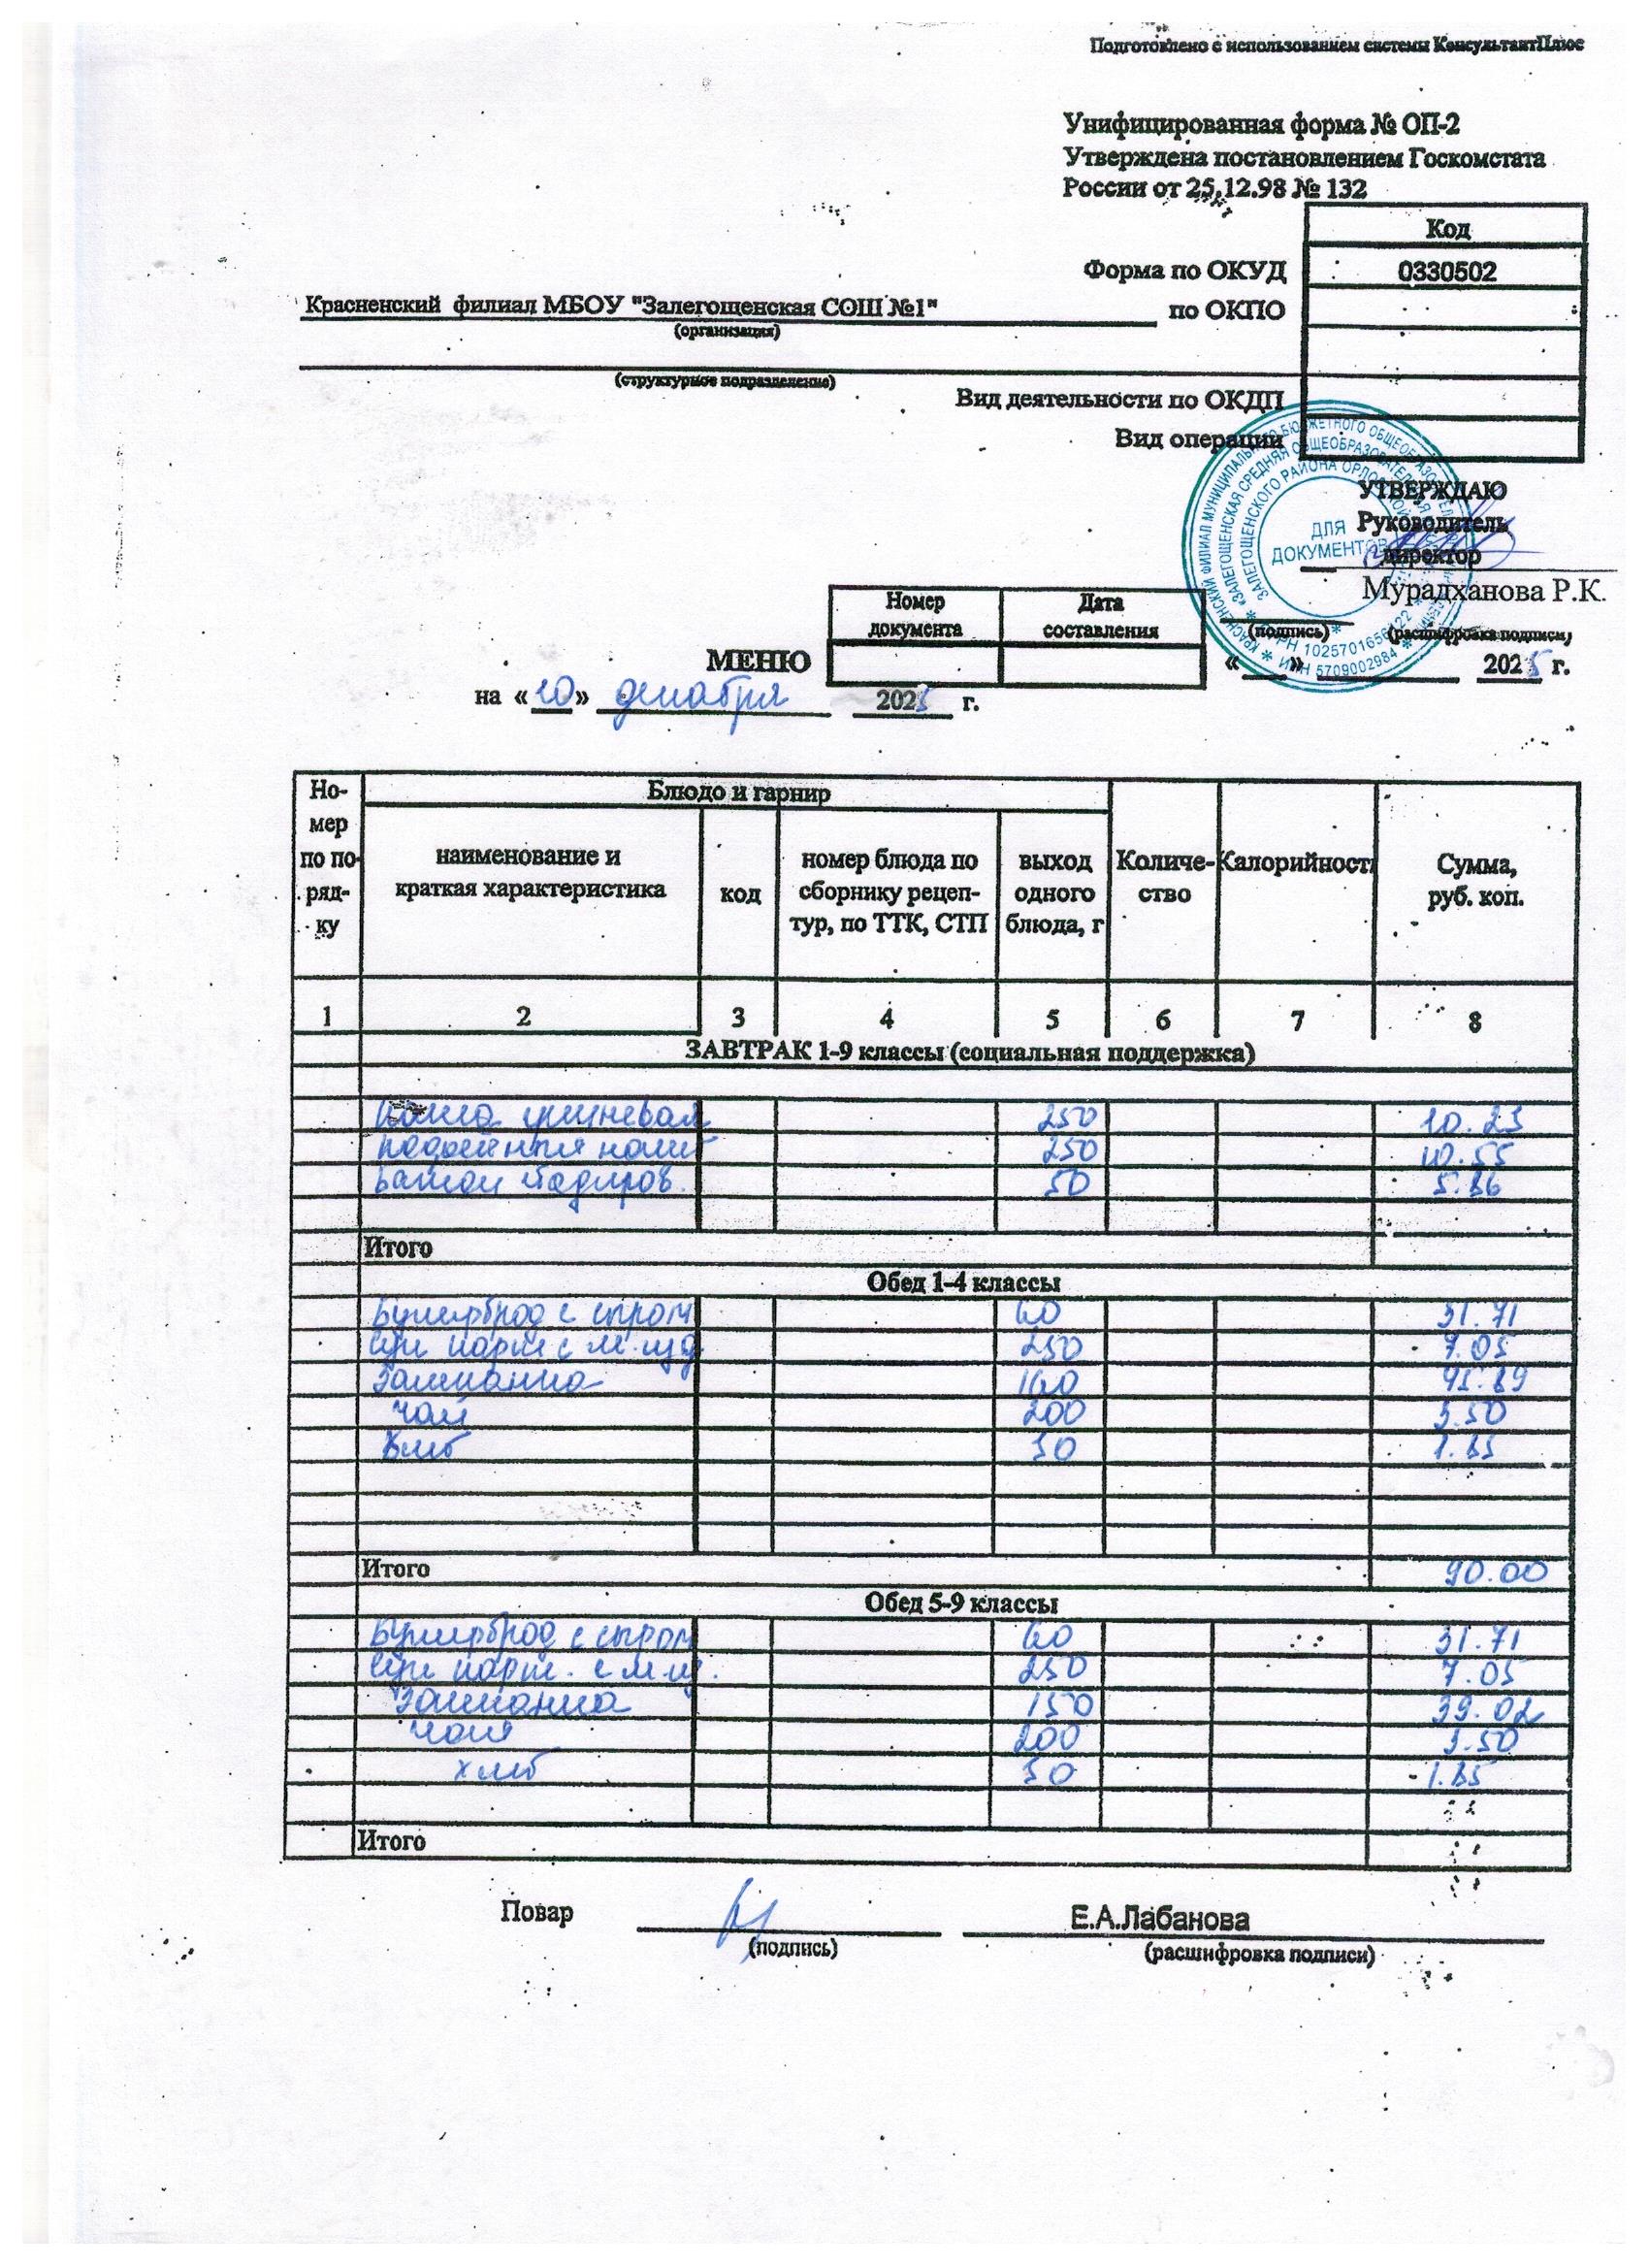 Подготовлено с использованием системы КонсультантПлюс
Унифицированная форма № ОП-2
Утверждена постановлением Госкомстата
России от 25.12.98 № 132
Код
Форма по ОКУД 0330502
Красненский филиал МБОУ "Залегощенская СОШ №1" по ОКПО
(организация)
(структурное подразделение)
Вид деятельности по ОКДП
Вид операции
УТВЕРЖДАЮ
Руководитель
директор
Мурадханова Р.К.
(подпись) (расшифровка подписи)
« » 2025 г.
ДЛЯ
ДОКУМЕНТОВ
ИНН 5709002984
Номер документа
Дата составления
МЕНЮ
на «10» декабря 2025 г.
Но-
мер
по по-
ряд-
ку
Блюдо и гарнир
наименование и
краткая характеристика
код
номер блюда по
сборнику рецеп-
тур, по ТТК, СТП
выход
одного
блюда, г
Количе-
ство
Калорийность
Сумма,
руб. коп.
1 2 3 4 5 6 7 8
ЗАВТРАК 1-9 классы (социальная поддержка)
250 10.23
250 10.55
50 5.86
Итого
Обед 1-4 классы
Бутерброд с сыром 60 31.71
250 7.05
Запеканка 160 45.89
Чай 200 3.50
Хлеб 30 1.85
Итого 90.00
Обед 5-9 классы
Бутерброд с сыром 60 31.71
250 7.05
Запеканка 150 39.02
Чай 200 3.50
Хлеб 30 1.85
Итого
Повар Е.А.Лабанова
(подпись) (расшифровка подписи)